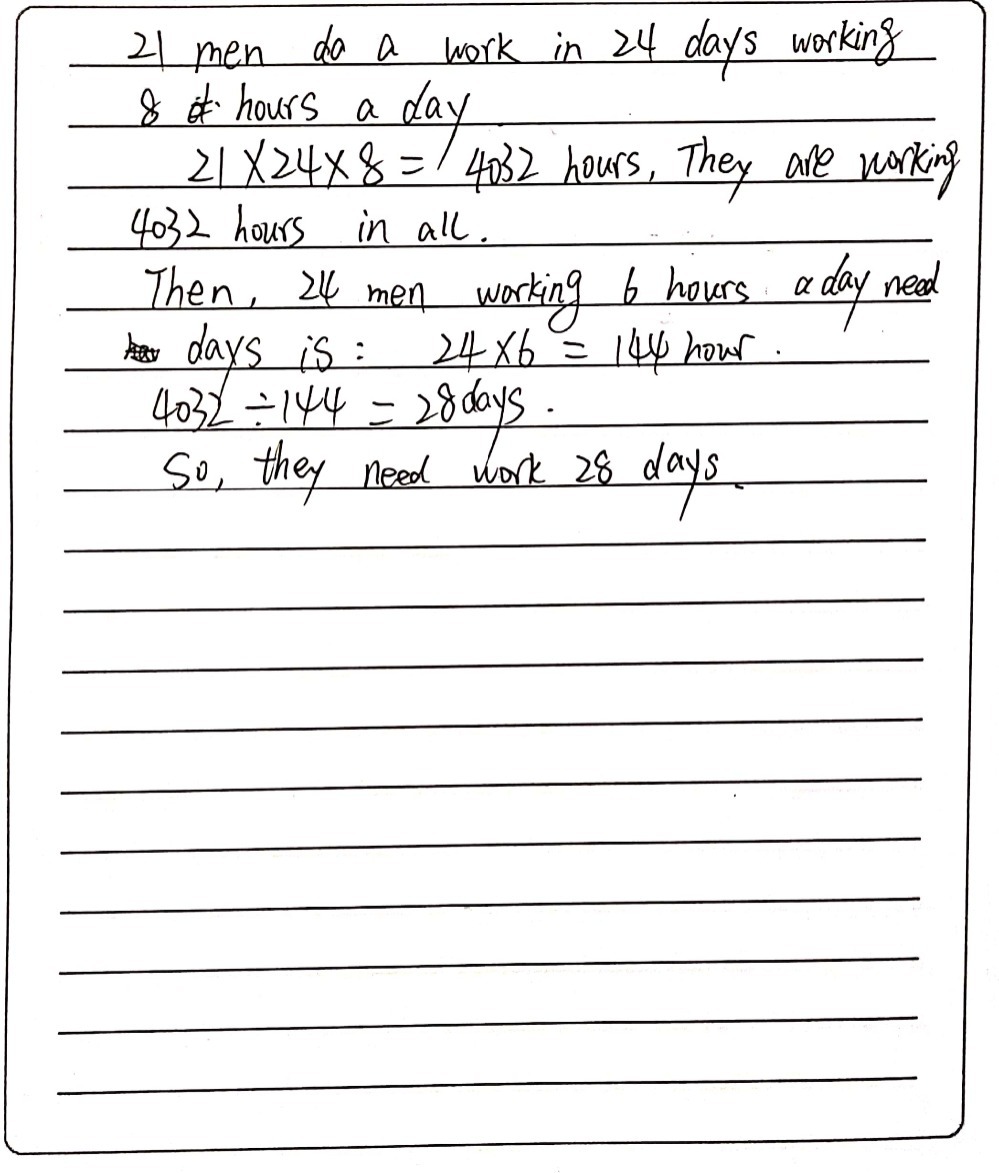 21 men do a work in 24 days working
8 hours a day
21×24×8= 4032 hours, They are working
4032 hours in all.
Then, 24 men working 6 hours a day need
days is: 24×6 = 144 hour.
4032÷144 = 28days.
So, they need work 28 days.